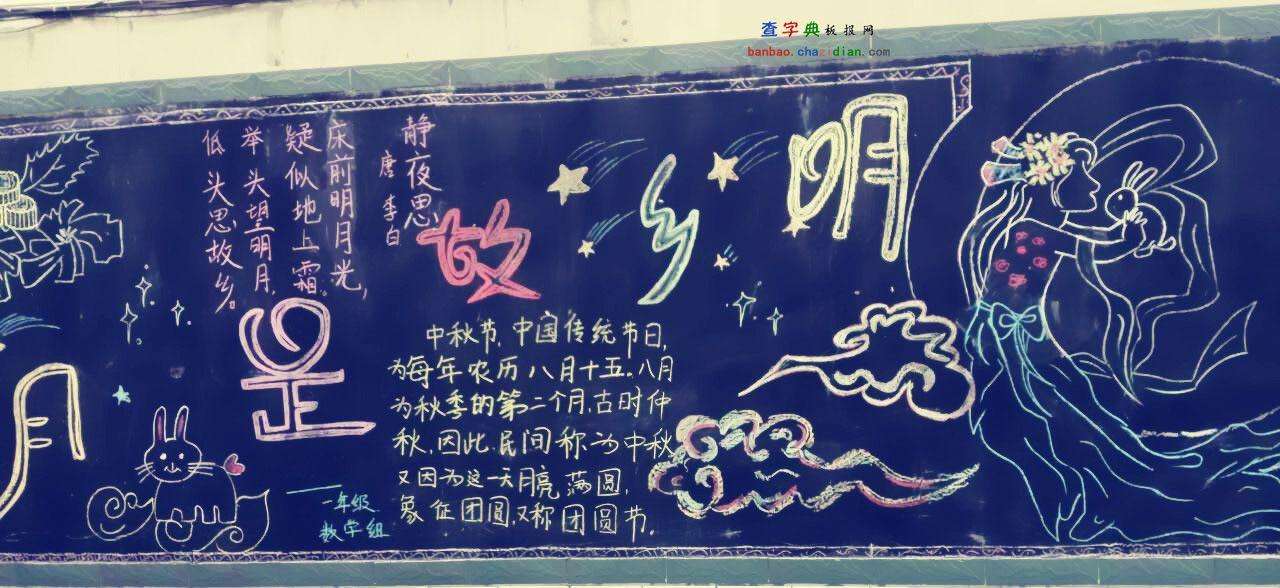 查字典板报网
banbao.chazidian.com
月是故乡明
静夜思
唐 李白
床前明月光,
疑似地上霜。
举头望明月
低头思故乡。
中秋节,中国传统节日,
为每年农历八月十五。八月
为秋季的第二个月,古时仲
秋,因此民间称为中秋
又因为这一天月亮满圆,
象征团圆,又称团圆节。
一年级
数学组